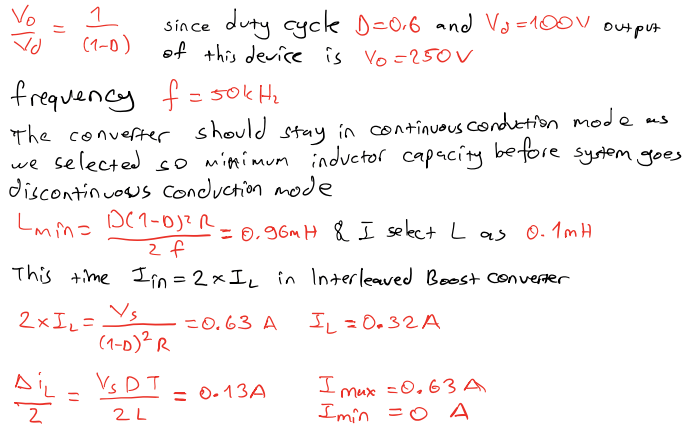 Vo/Vd = 1/(1-D) since duty cycle D=0.6 and Vd=100V output
of this device is Vo=250V
frequency f = 50kHz
The converter should stay in continuous conduction mode as
we selected so minimum inductor capacity before system goes
discontinuous conduction mode
Lmin = D(1-D)²R / 2f = 0.96mH & I select L as 0.1mH
This time Iin = 2×IL in Interleaved Boost converter
2×IL = Vs/(1-D)²R = 0.63 A IL = 0.32A
ΔiL/2 = VsDT/2L = 0.13A Imax = 0.63A
Imin = 0 A